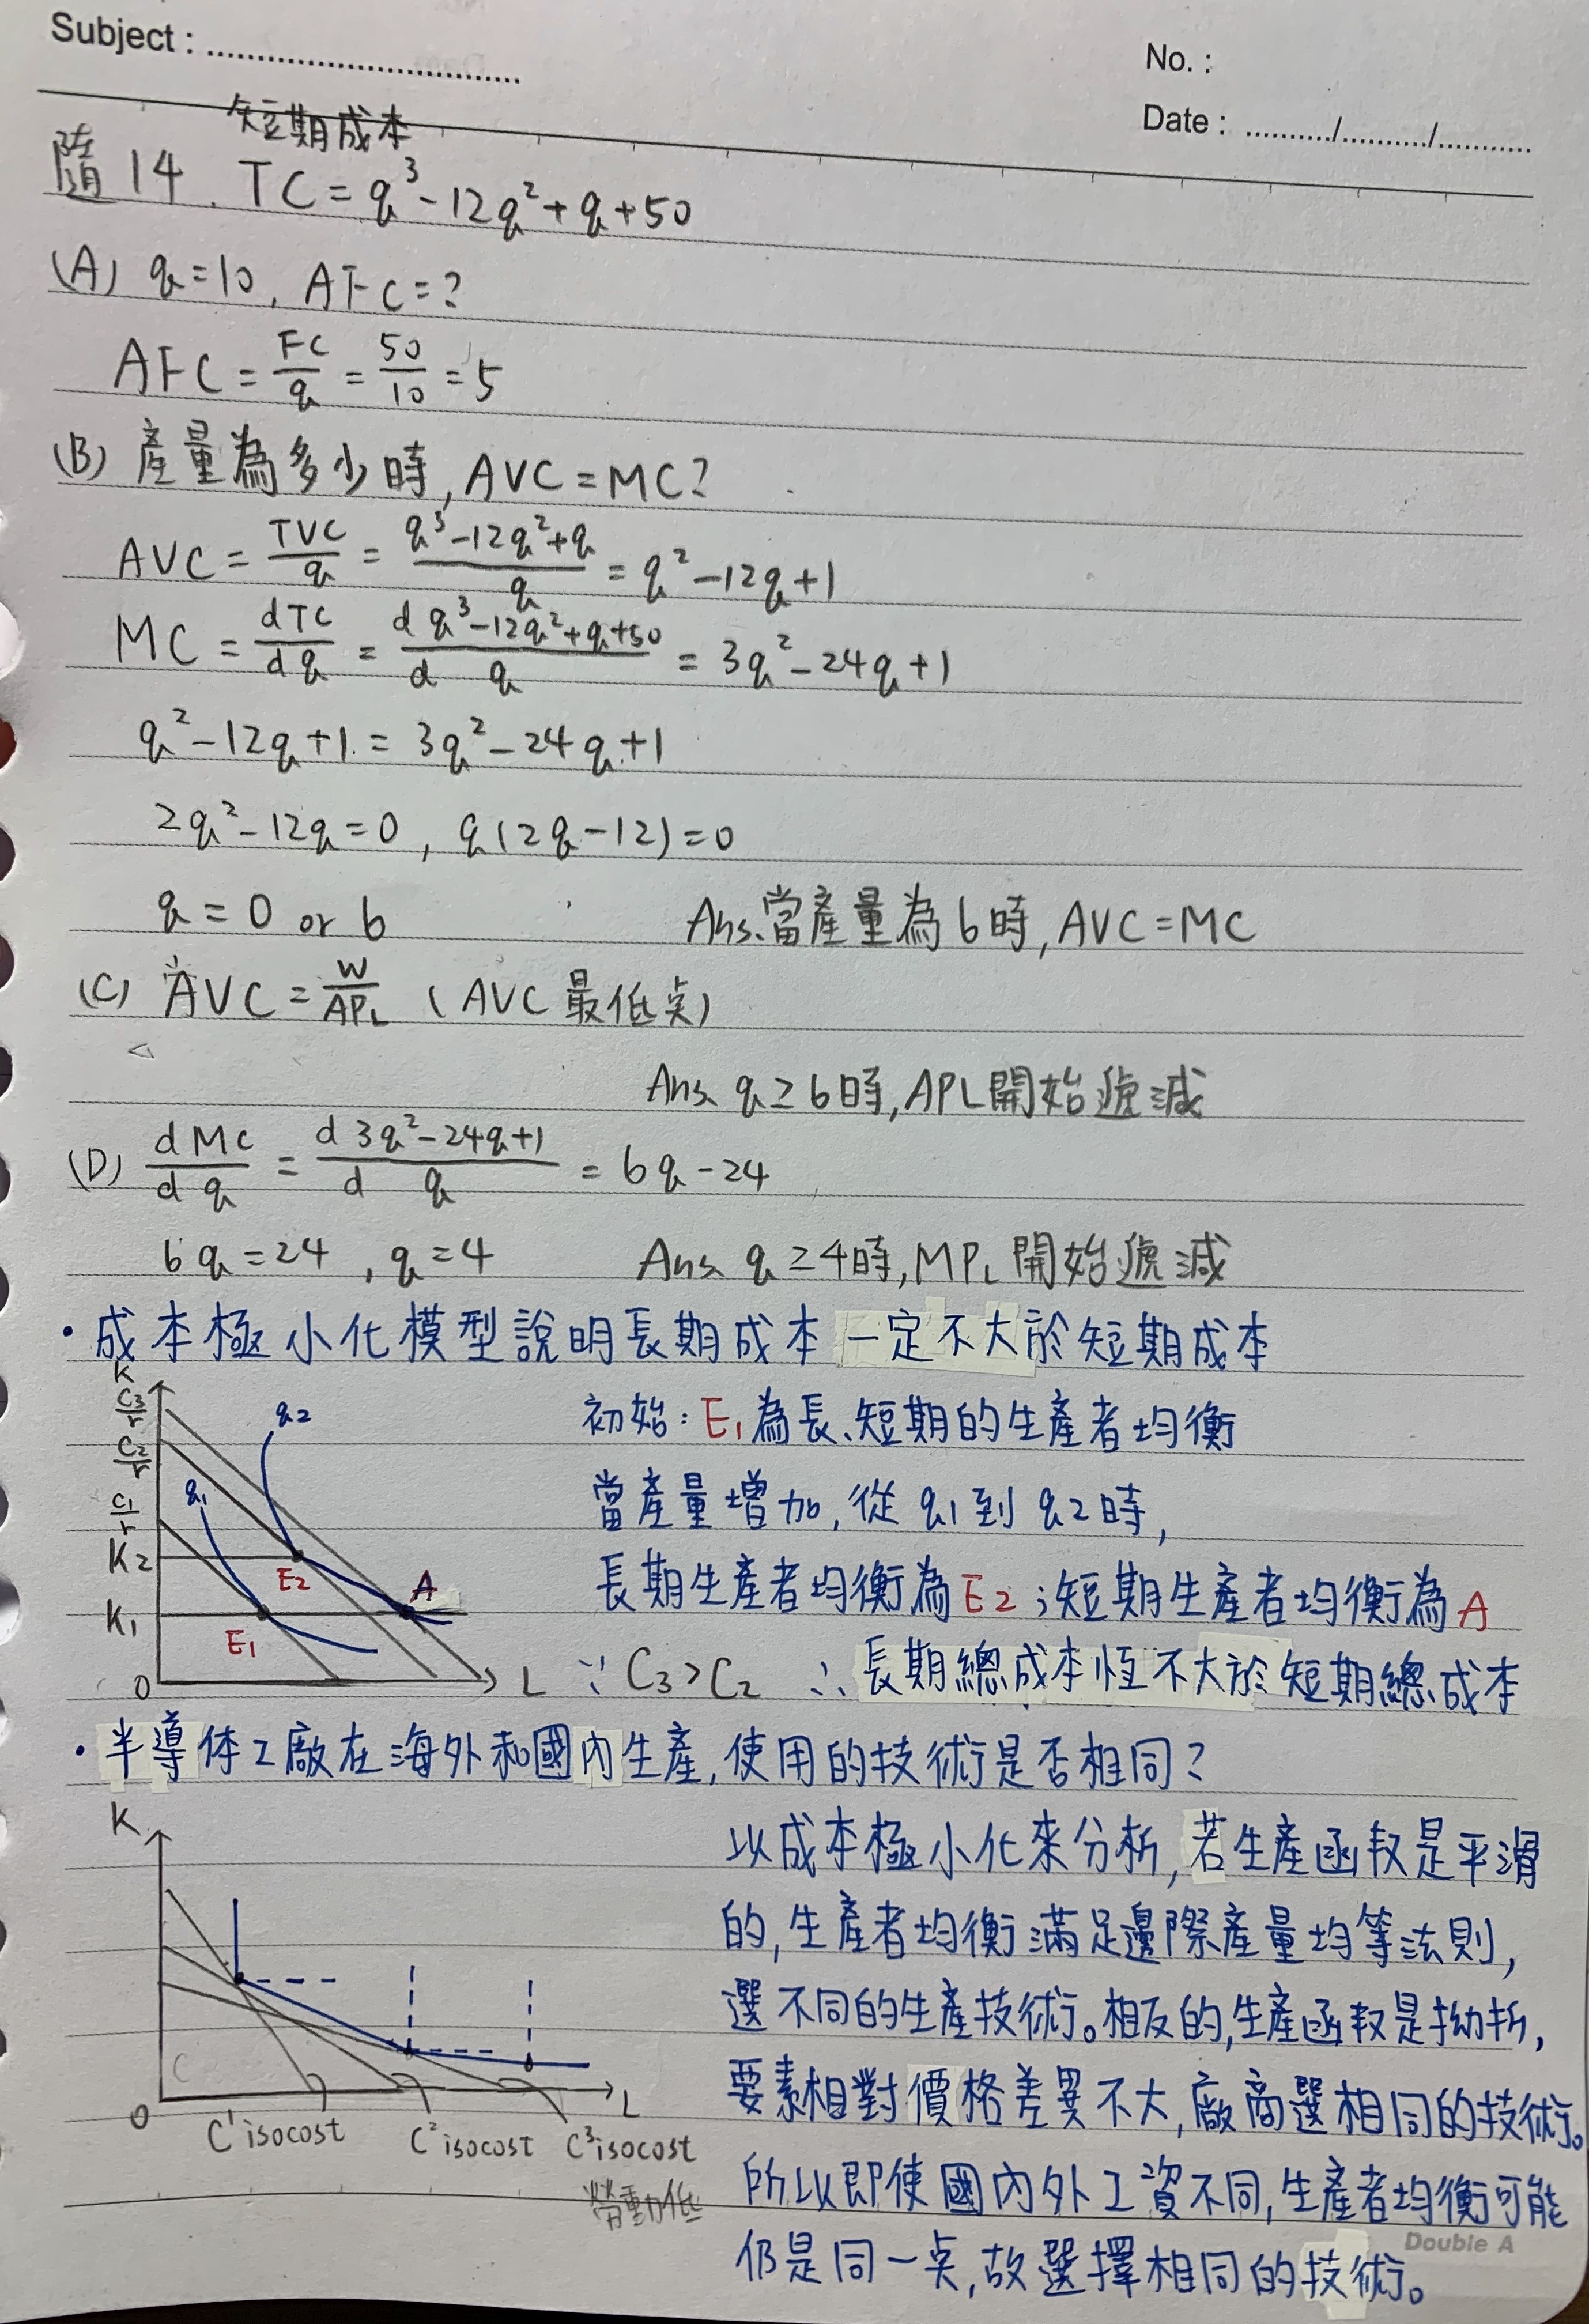 Subject :
No. :
Date : / /
短期成本
隨 14. TC = q³-12q²+q+50
(A) q=10, AFC=?
AFC = FC/q = 50/10 = 5
(B) 產量為多少時, AVC=MC?
AVC = TVC/q = (q³-12q²+q)/q = q²-12q+1
MC = dTC/dq = d q³-12q²+q+50 / d q = 3q²-24q+1
q²-12q+1 = 3q²-24q+1
2q²-12q=0, q(2q-12)=0
q = 0 or 6 Ans、當產量為6時, AVC=MC
(C) AVC = W/APL (AVC最低点)
Ans、q≥6時, APL開始遞減
(D) dMC/dq = d 3q²-24q+1 / d q = 6q-24
6q=24, q=4 Ans、q≥4時, MPL開始遞減
• 成本極小化模型說明長期成本一定不大於短期成本
K
C3/r
C2/r
C1/r
K2
K1
0
q2
q1
E2
A
E1
L
初始: E1為長、短期的生產者均衡
當產量增加, 從q1到q2時,
長期生產者均衡為E2;短期生產者均衡為A
∵ C3>C2 ∴ 長期總成本恆不大於短期總成本
• 半導体工廠在海外和國內生產, 使用的技術是否相同?
K
C
0
L
C¹isocost C²isocost C³isocost
勞動低
以成本極小化來分析, 若生產函数是平滑
的, 生產者均衡滿足邊際產量均等法則,
選不同的生產技術。相反的, 生產函数是拗折,
要素相對價格差異不大, 廠商選相同的技術。
所以即使國內外工資不同, 生產者均衡可能
仍是同一点, 故選擇相同的技術。
Double A